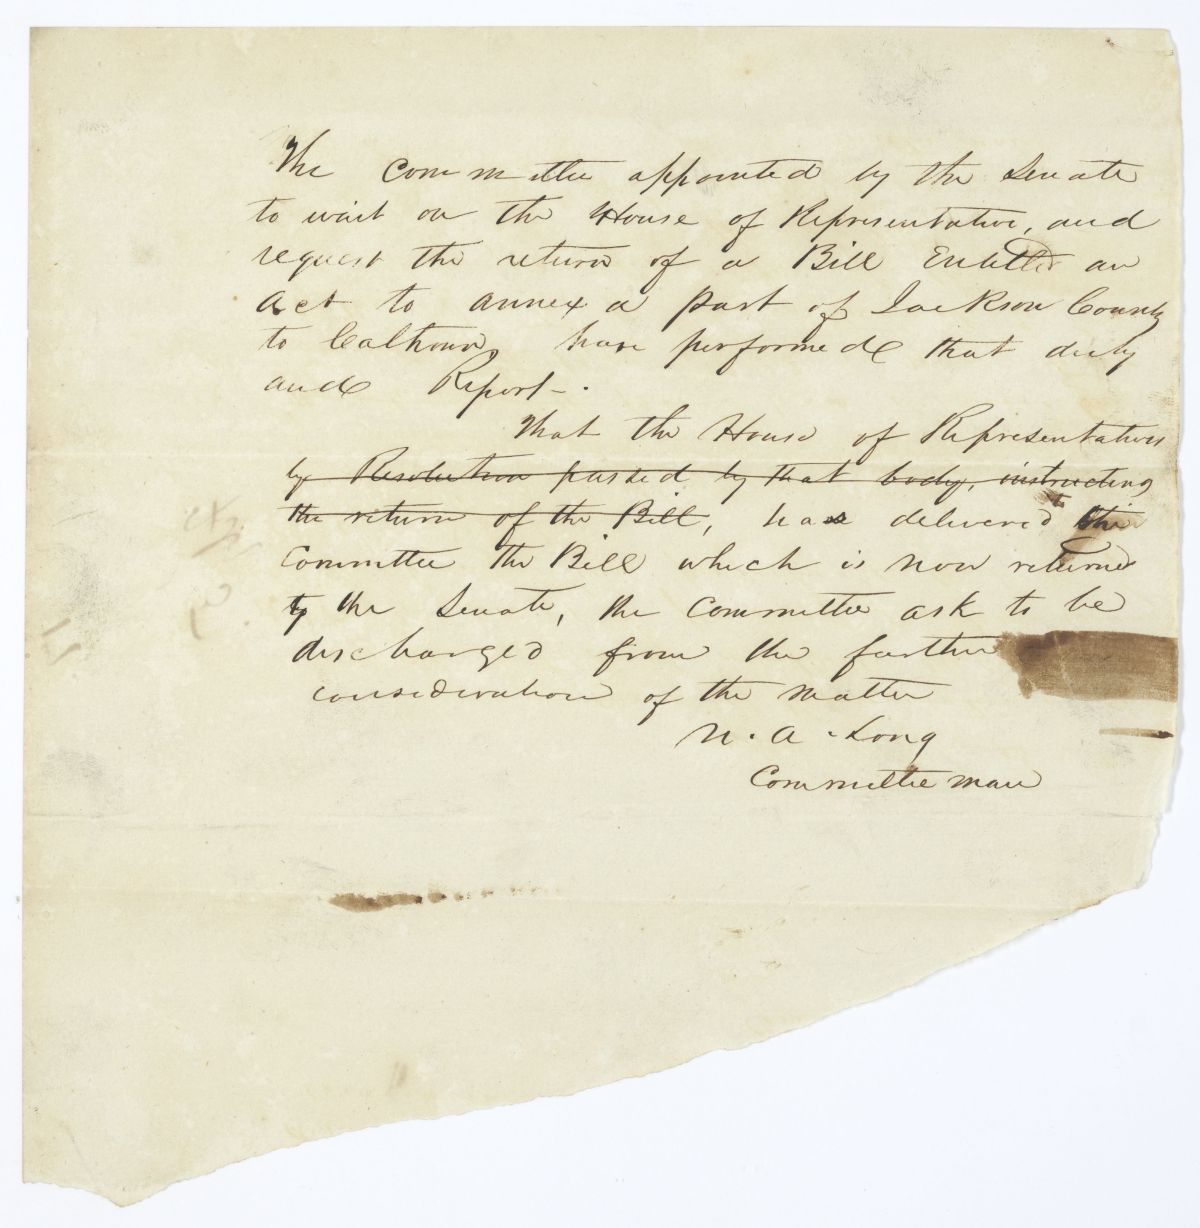 The Committee appointed by the Senate
to wait on the House of Representative, and
request the return of a Bill Entitled an
Act to annex a part of Jackson County
to Calhoun, have performed that duty
and Report -.
That the House of Representatives
by Resolution passed by that body, instructing
the return of the Bill, has delivered to this
Committee the Bill which is now returned
to the Senate, the Committee ask to be
discharged from the further
consideration of the matter
A. Long
Committee man